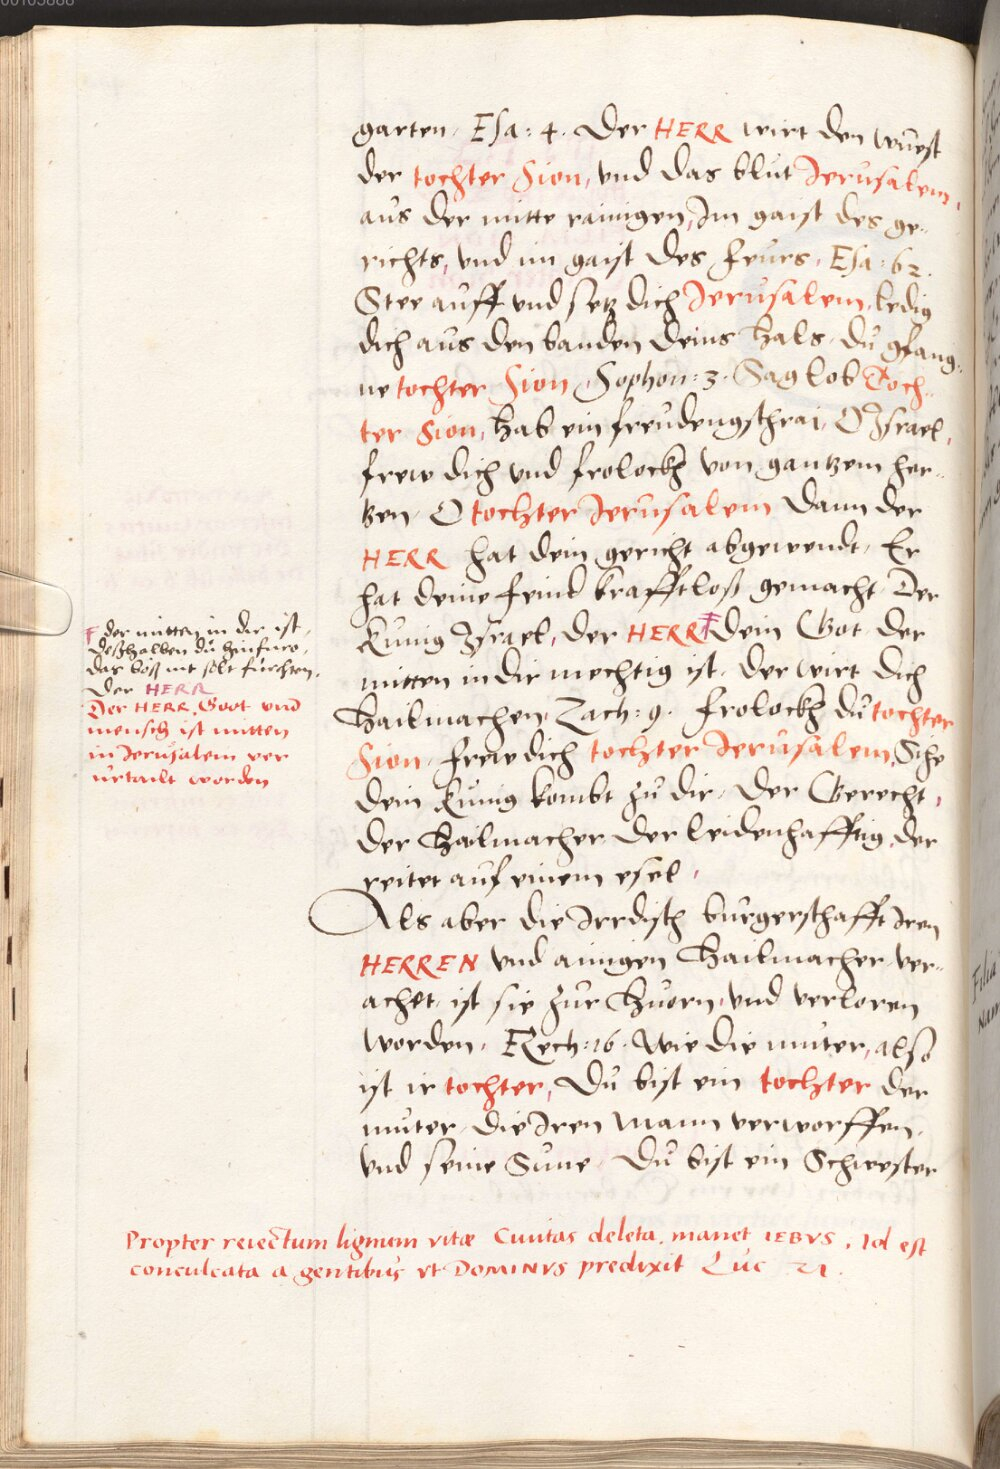 garten, Esa: 4. Der HERR wirt den wuest
der tochter Sion, vnd das blut Jerusalem,
aus der mitte rainigen, Im gaist des ge-
richts, vnd im gaist des feurs, Esa: 62.
Stee auff vnd setz dich Jerusalem, ledig
dich aus den banden deins hals, du gfang-
ne tochter Sion, Sophon: 3. Sag lob Toch-
ter Sion, hab ein freudengschrai, O Israel,
frew dich vnd frolockh von gantzem her-
tzen, O tochter Jerusalem, Dann der
HERR hat dein gericht abgewendt, Er
hat deine feind krafftloß gemacht, Der
Kunig Israel, der HERR dein Got, der
mitten in dir mechtig ist, der wirt dich
hailmachen, Zach: 9. frolockh du tochter
Sion, frew dich tochter Jerusalem, Sihe
dein Kunig kombt zu dir, der Gerecht,
der Hailmacher, der leidenhafftig, der
reitet auf einem esel,
Als aber die Irrdisch burgerschafft Iren
HERREN vnd ainigen Hailmacher ver-
achet, ist sie zur Huorn, vnd verloren
worden, Ezech: 16. Wie die muter, also
ist ir tochter, Du bist ein tochter der
muter, die Iren Mann verworffen,
vnd seine Sune, Du bist ein Schwester
der mitten in dir ist,
deßhalben du hinfuro,
das böß nit solt furchten.
Der HERR
Der HERR, Goot vnd
mensch ist mitten
in Jerusalem ver
urtailt worden
Propter reiectum lignum vitæ Ciuitas deleta, manet IEBVS, Id est
conculcata a gentibus vt DOMINVS predixit Luc 21.
Filia
00103888